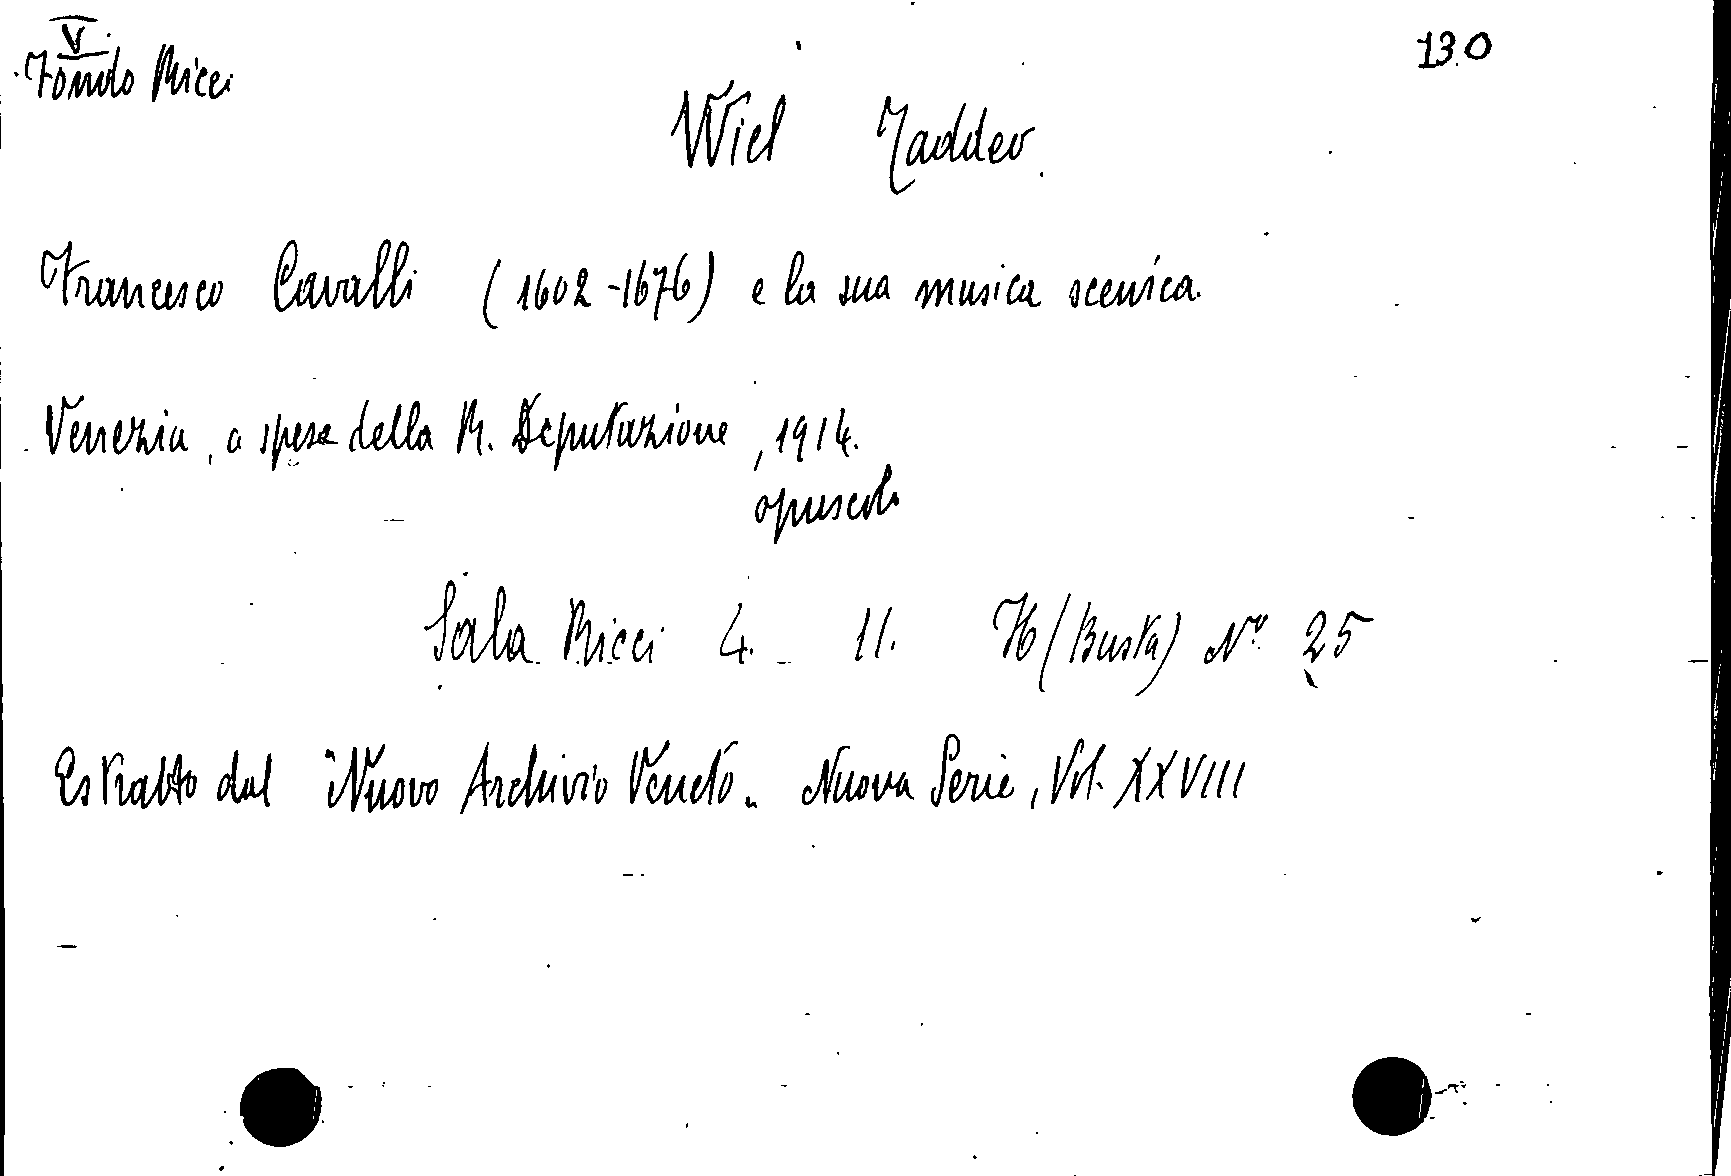 V
Fondo Ricci
130
Wiel Taddeo
Francesco Cavalli (1602-1676) e la sua musica scenica.
Venezia, a spese della R. Deputazione, 1914.
opuscolo
Sala Ricci 4. 11. H (Busta) N° 25
Estratto dal "Nuovo Archivio Veneto" Nuova Serie, Vol. XXVIII